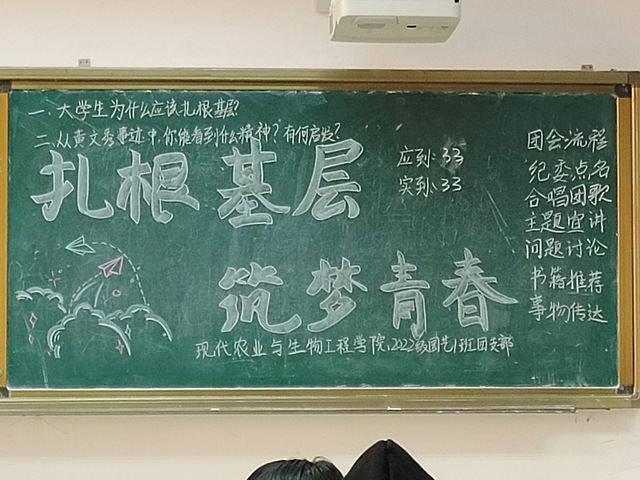 一、大学生为什么应该扎根基层?
二、从黄文秀事迹中,你能看到什么精神?有何启发?
扎根基层
筑梦青春
现代农业与生物工程学院,2022级园艺1班团支部
应到:33
实到:33
团会流程
纪委点名
合唱团歌
主题宣讲
问题讨论
书籍推荐
事物传达